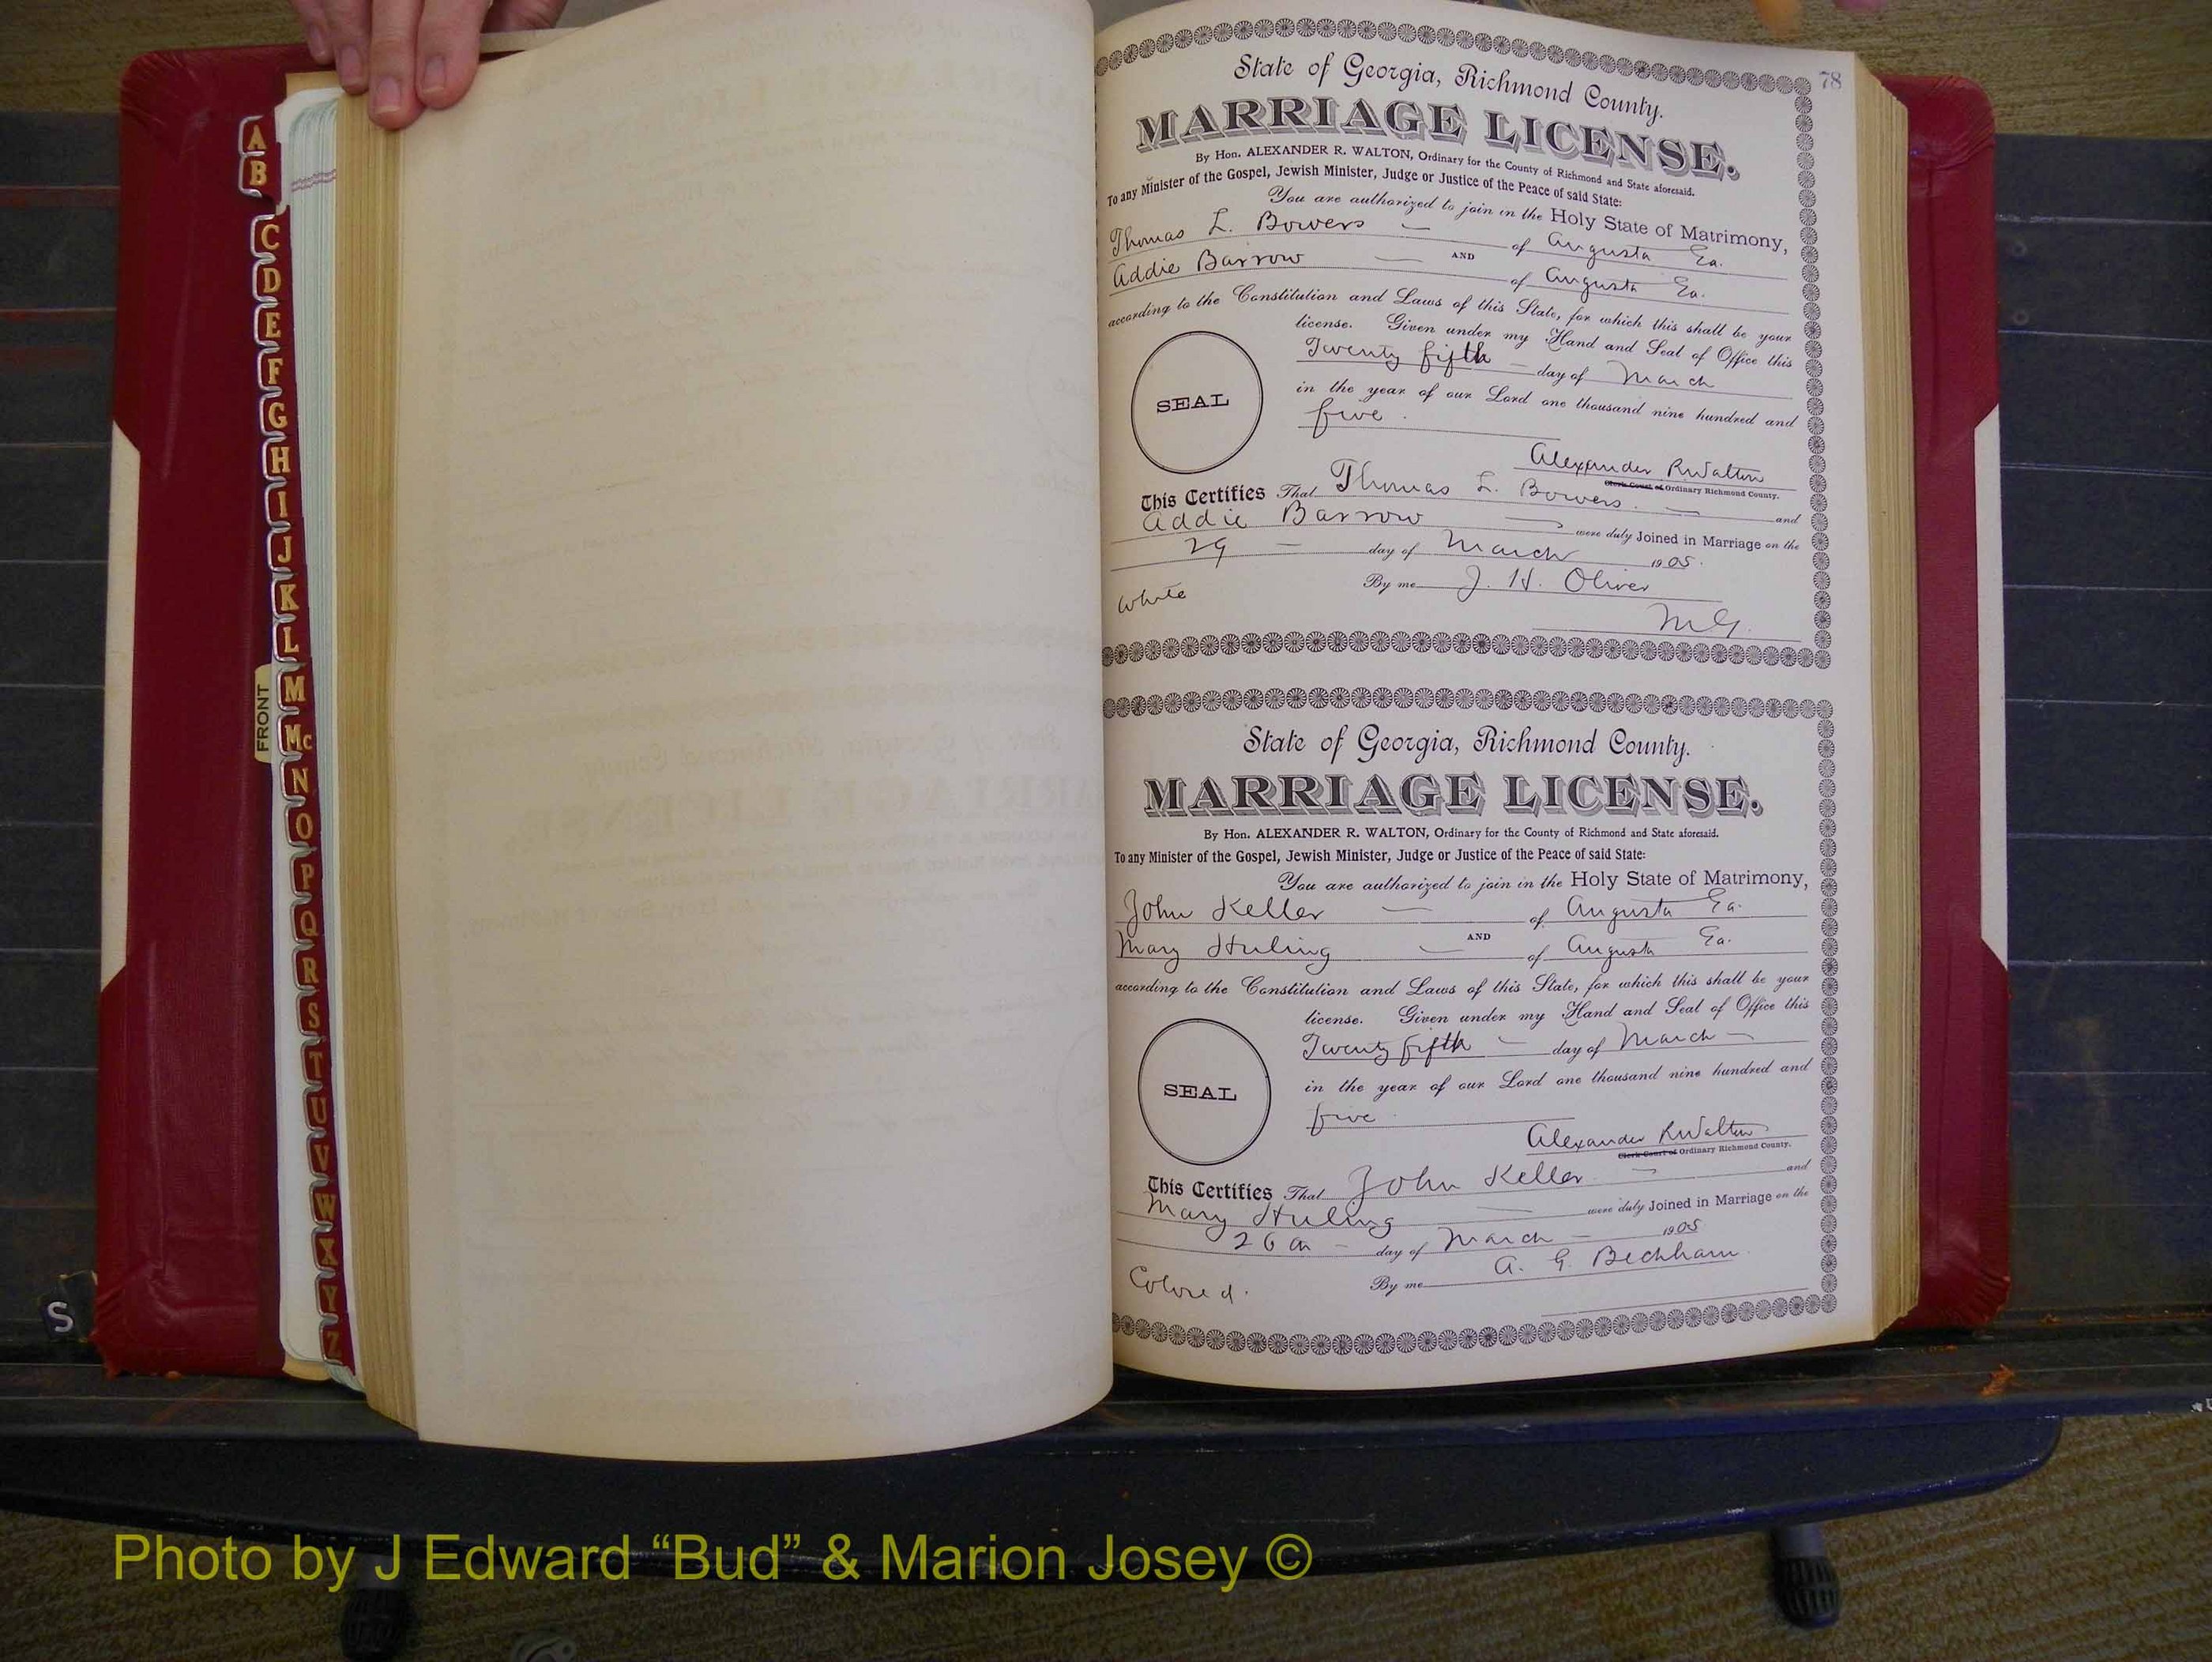 A
B
C
D
E
F
G
H
I
J
K
L
M
Mc
N
O
P
Q
R
S
T
U
V
W
X
Y
Z
FRONT
S
78
State of Georgia, Richmond County.
MARRIAGE LICENSE.
By Hon. ALEXANDER R. WALTON, Ordinary for the County of Richmond and State aforesaid.
To any Minister of the Gospel, Jewish Minister, Judge or Justice of the Peace of said State:
You are authorized to join in the Holy State of Matrimony,
Thomas L. Bowers of Augusta Ga.
AND
Addie Barrow of Augusta Ga.
according to the Constitution and Laws of this State, for which this shall be your
license. Given under my Hand and Seal of Office this
Twenty fifth day of March
in the year of our Lord one thousand nine hundred and
five.
SEAL
Alexander R Walton
Clerk Court of Ordinary Richmond County.
This Certifies That Thomas L. Bowers. and
Addie Barrow were duly Joined in Marriage on the
29 day of March 1905.
By me J. H. Oliver
White
M.G.
State of Georgia, Richmond County.
MARRIAGE LICENSE.
By Hon. ALEXANDER R. WALTON, Ordinary for the County of Richmond and State aforesaid.
To any Minister of the Gospel, Jewish Minister, Judge or Justice of the Peace of said State:
You are authorized to join in the Holy State of Matrimony,
John Keller of Augusta Ga.
AND
Mary Huling of Augusta Ga.
according to the Constitution and Laws of this State, for which this shall be your
license. Given under my Hand and Seal of Office this
Twenty fifth day of March
in the year of our Lord one thousand nine hundred and
five
SEAL
Alexander R Walton
Clerk Court of Ordinary Richmond County.
This Certifies That John Keller and
Mary Huling were duly Joined in Marriage on the
26th day of March 1905
By me A. G. Beckham
Colored.
Photo by J Edward “Bud” & Marion Josey ©